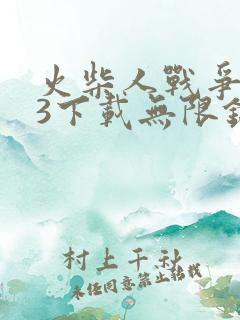 火柴人戰爭
3下載無限鑽
村上千秋
未經同意禁止轉載